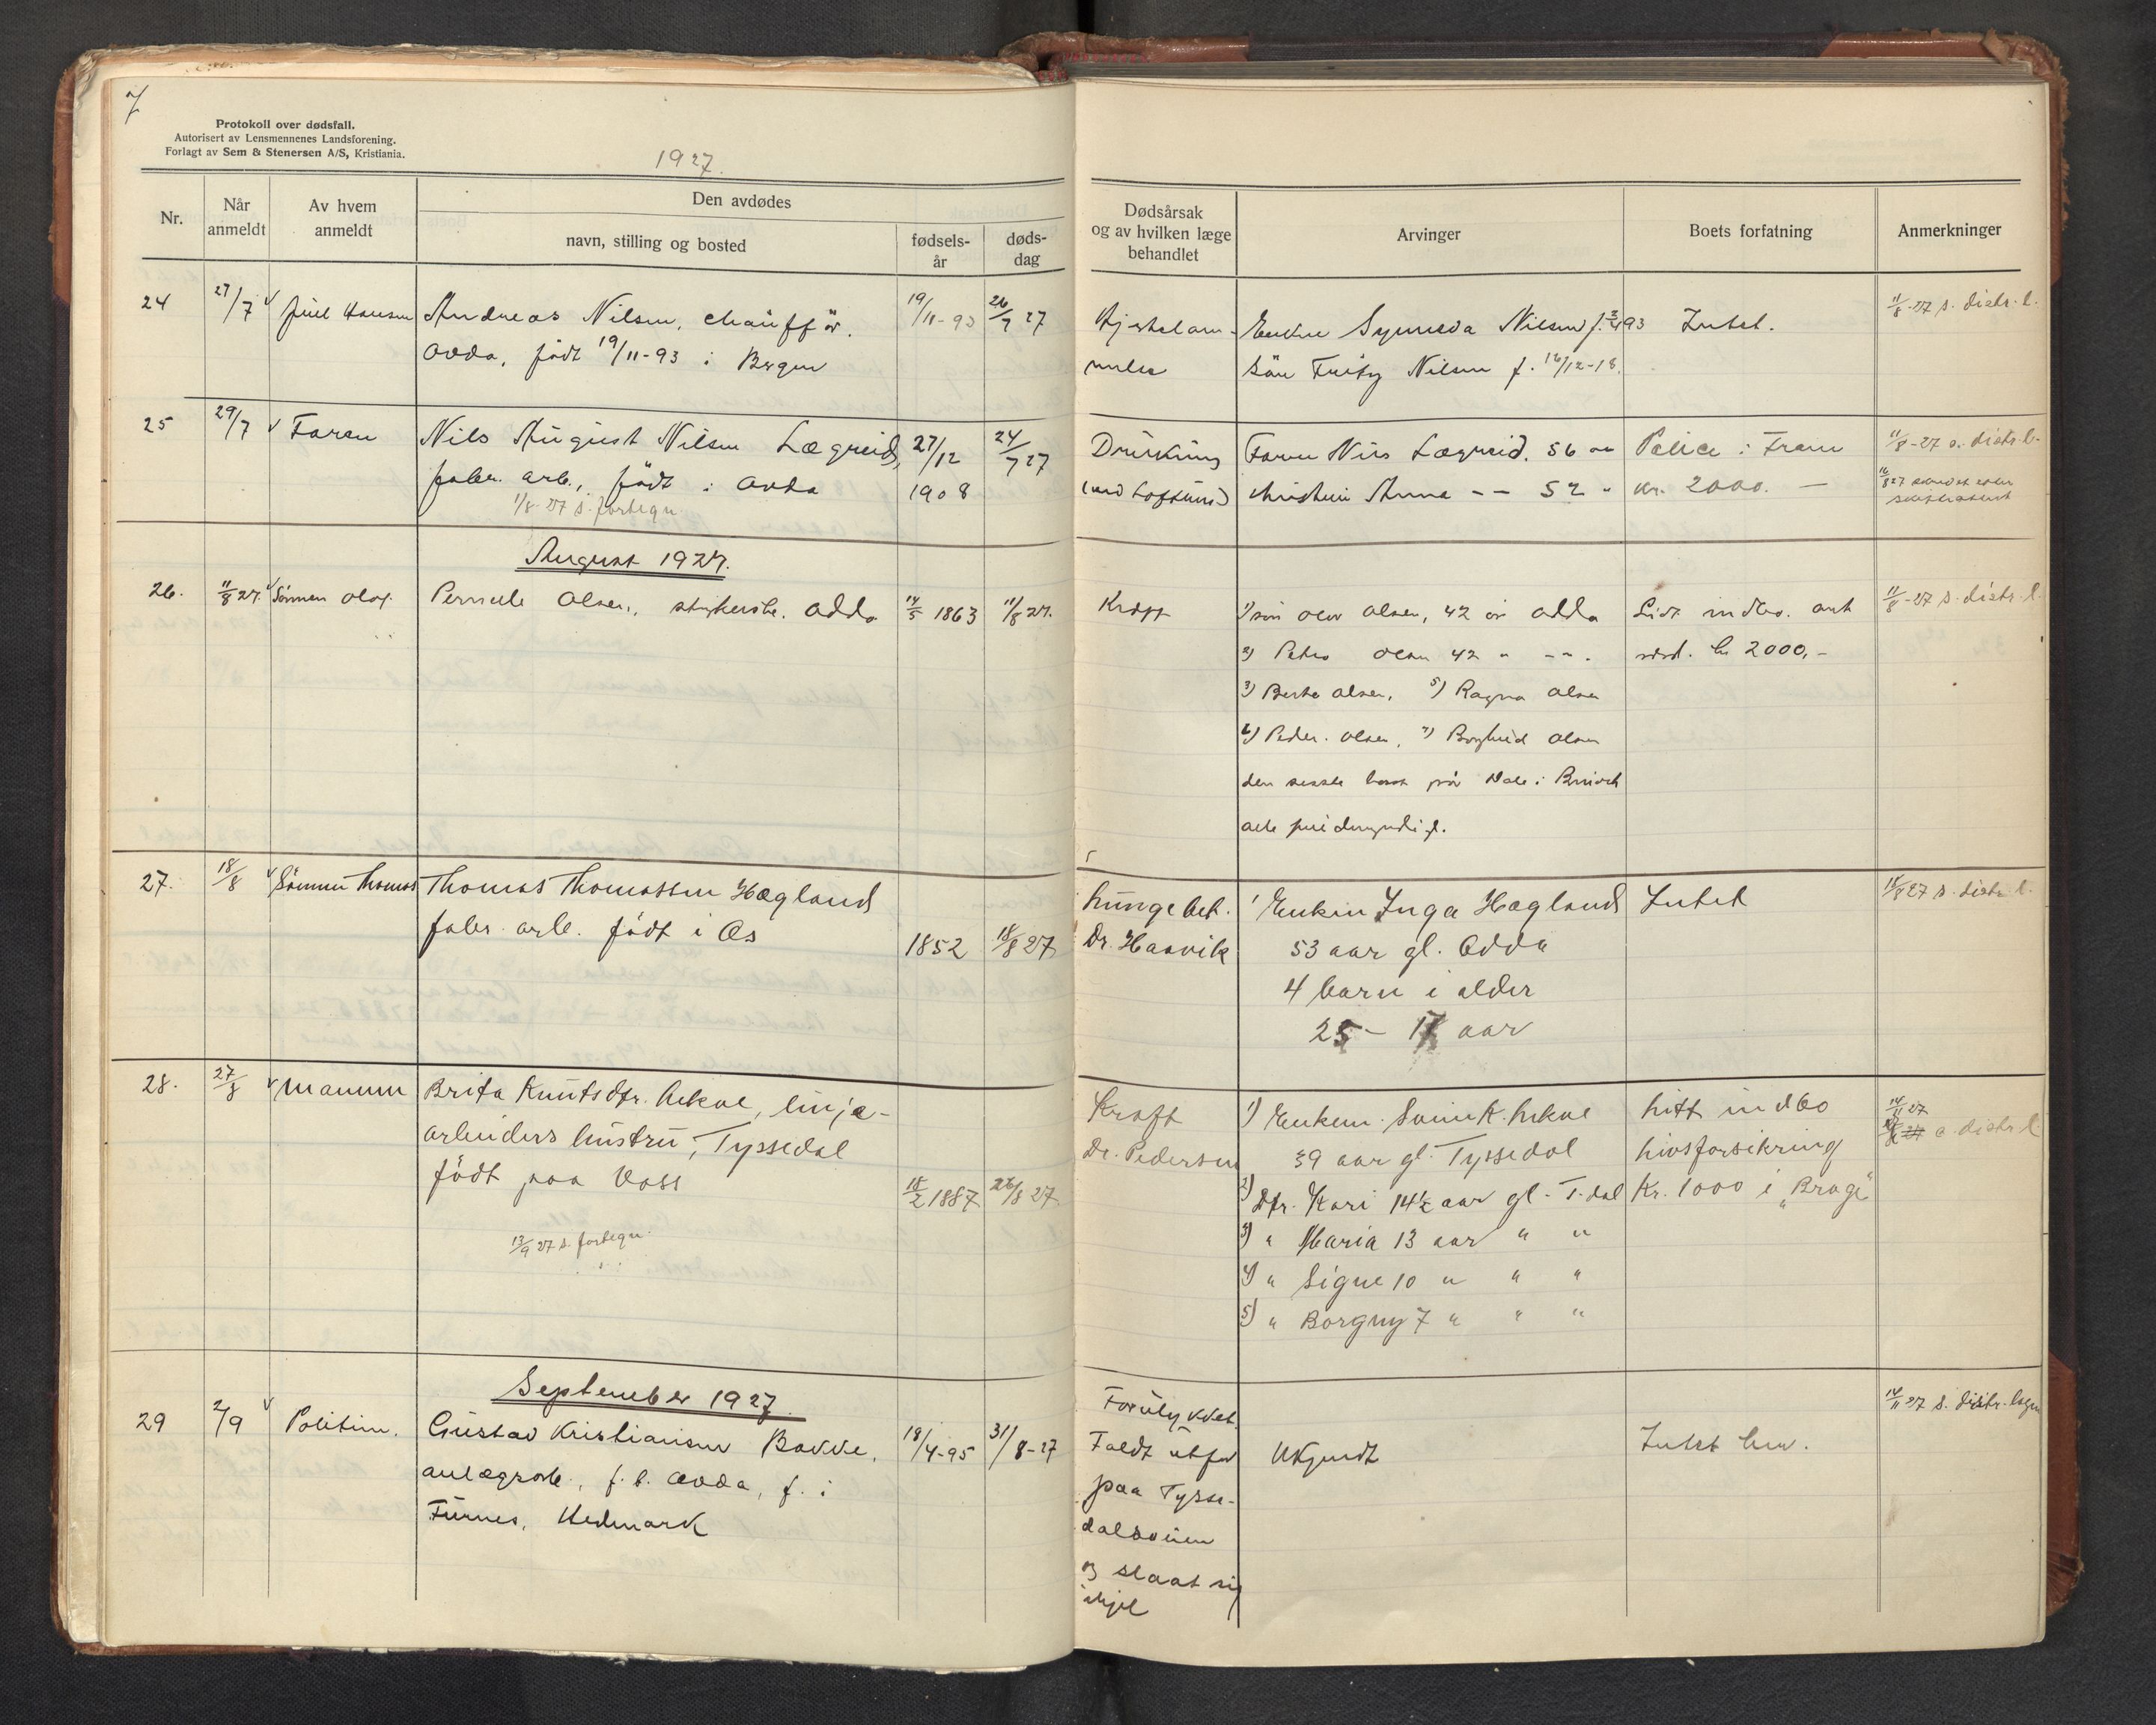 7
Protokoll over dødsfall.
Autorisert av Lensmennenes Landsforening.
Forlagt av Sem & Stenersen A/S, Kristiania.
1927.
Nr.
Når anmeldt
Av hvem anmeldt
Den avdødes
navn, stilling og bosted
fødsels-år
døds-dag
Dødsårsak og av hvilken læge behandlet
Arvinger
Boets forfatning
Anmerkninger
24 27/7 Juel Hansen Andreas Nilsen, chauffør. 19/11-93 26/7 27 Enken Nilsen f. 93 Intet. 11/8-27 s. distr. l.
Odda, født 19/11-93 i Bergen Nilsen f. 16/12-18.
25 29/7 Faren Nils August Nilsen Lægreid, 27/12 24/7 27 Drukning Faren Nils Lægreid. 56 aar Police i Fram 11/8-27 s. distr. l.
fabr. arb., født i Odda 1908 (ved Lofthus) Anna -- 52 " kr. 2000. —
1/8-27 s. fortegn.
August 1927.
26. 11/8 27. Sønnen Olaf. Olsen, Odda 14/5 1863 11/8 27. Kræft 1) søn Olav Olsen, 42 år Odda Lidt indbo. ant 11/8-27 s. distr. l.
2) Olsen 42 " -"- . kr 2000,-
3) Berta Olsen, 5) Ragna Olsen
6) Peder Olsen, 7) Borghild Olsen
den siste bosat på Dale i
alle fuldmyndige.
27. 18/8 Sønnen Thomas Thomas Thomassen Hægland 1852 18/8 27 Lungebet. 1 Enken Inga Hægland Intet 18/8 27 s. distr. l.
fabr. arb. født i Os Dr. Haavik 53 aar gl. Odda
4 barn i alder
25 - 17 aar
28. 27/8 Mannen Brita Knutsdtr. Lekve, linje- Kræft 1) Enkem. Lekve Litt indbo 14/11 27
arbeiders hustru, Tyssedal Dr. Pedersen 39 aar gl. Tyssedal Livsforsikring s. distr. l.
født paa Voss 18/2 1887 26/8 27 2) Dtr. Kari 14½ aar gl. T.dal Kr. 1000 i „Brage"
3) " Maria 13 aar " "
13/9 27 s. fortegn.
4) " Signe 10 " " "
5) " Borgny 7 " " "
September 1927.
29 2/9 Politiet. Gustav Kristiansen Bakke, 18/4-95 31/8-27 Forulykket. Ukjendt Intet bev. 14/11 27 s. distr. legen
anlægsarb., f. b. Odda, f. i Faldt utfor
Furnes, Hedmark paa Tysse-
dalsveien
og slaat sig
ihjel